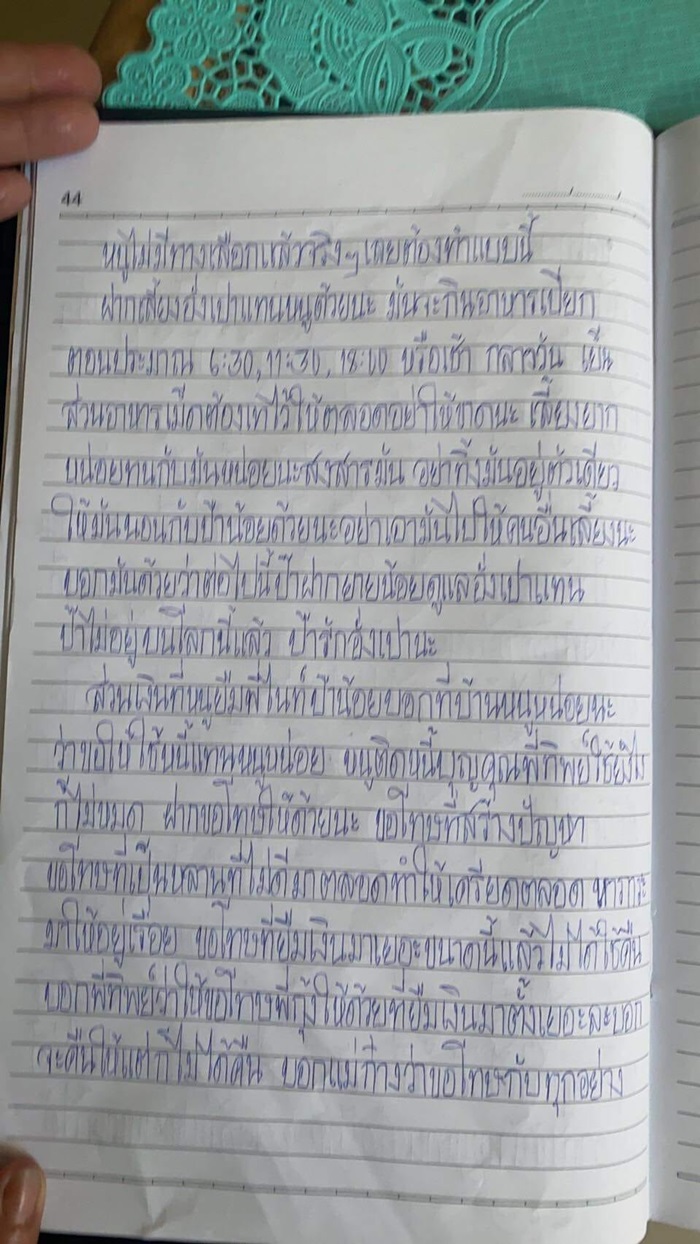 44
หนูไม่มีทางเลือกแล้วจริงๆเลยต้องทำแบบนี้
ฝากเลี้ยงอั่งเปาแทนหนูด้วยนะ มันจะกินอาหารเปียก
ตอนประมาณ 6:30, 11:30, 18:00 หรือเช้า กลางวัน เย็น
ส่วนอาหารเม็ดต้องเทไว้ให้ตลอดอย่าให้ขาดนะ เลี้ยงยาก
หน่อยทนกับมันหน่อยนะสงสารมัน อย่าทิ้งมันอยู่ตัวเดียว
ให้มันนอนกับป้าน้อยด้วยนะอย่าเอามันไปให้คนอื่นเลี้ยงนะ
บอกมันด้วยว่าต่อไปนี้ป๊าฝากยายน้อยดูแลอั่งเปาแทน
ป๊าไม่อยู่บนโลกนี้แล้ว ป๊ารักอั่งเปานะ
ส่วนเงินที่หนูยืมพี่ไนท์ป้าน้อยบอกที่บ้านหนูหน่อยนะ
ว่าขอให้ใช้หนี้แทนหนูหน่อย หนูติดหนี้บุญคุณพี่ทิพย์ใช้ยังไง
ก็ไม่หมด ฝากขอโทษให้ด้วยนะ ขอโทษที่สร้างปัญหา
ขอโทษที่เป็นหลานที่ไม่ดีมาตลอดทำให้เครียดตลอด หาภาระ
มาให้อยู่เรื่อย ขอโทษที่ยืมเงินมาเยอะขนาดนี้แล้วไม่ได้ใช้คืน
บอกพี่ทิพย์ว่าให้ขอโทษพี่กุ้งให้ด้วยที่ยืมเงินมาตั้งเยอะละบอก
จะคืนให้แต่ก็ไม่ได้คืน บอกแม่ก้างว่าขอโทษกับทุกอย่าง